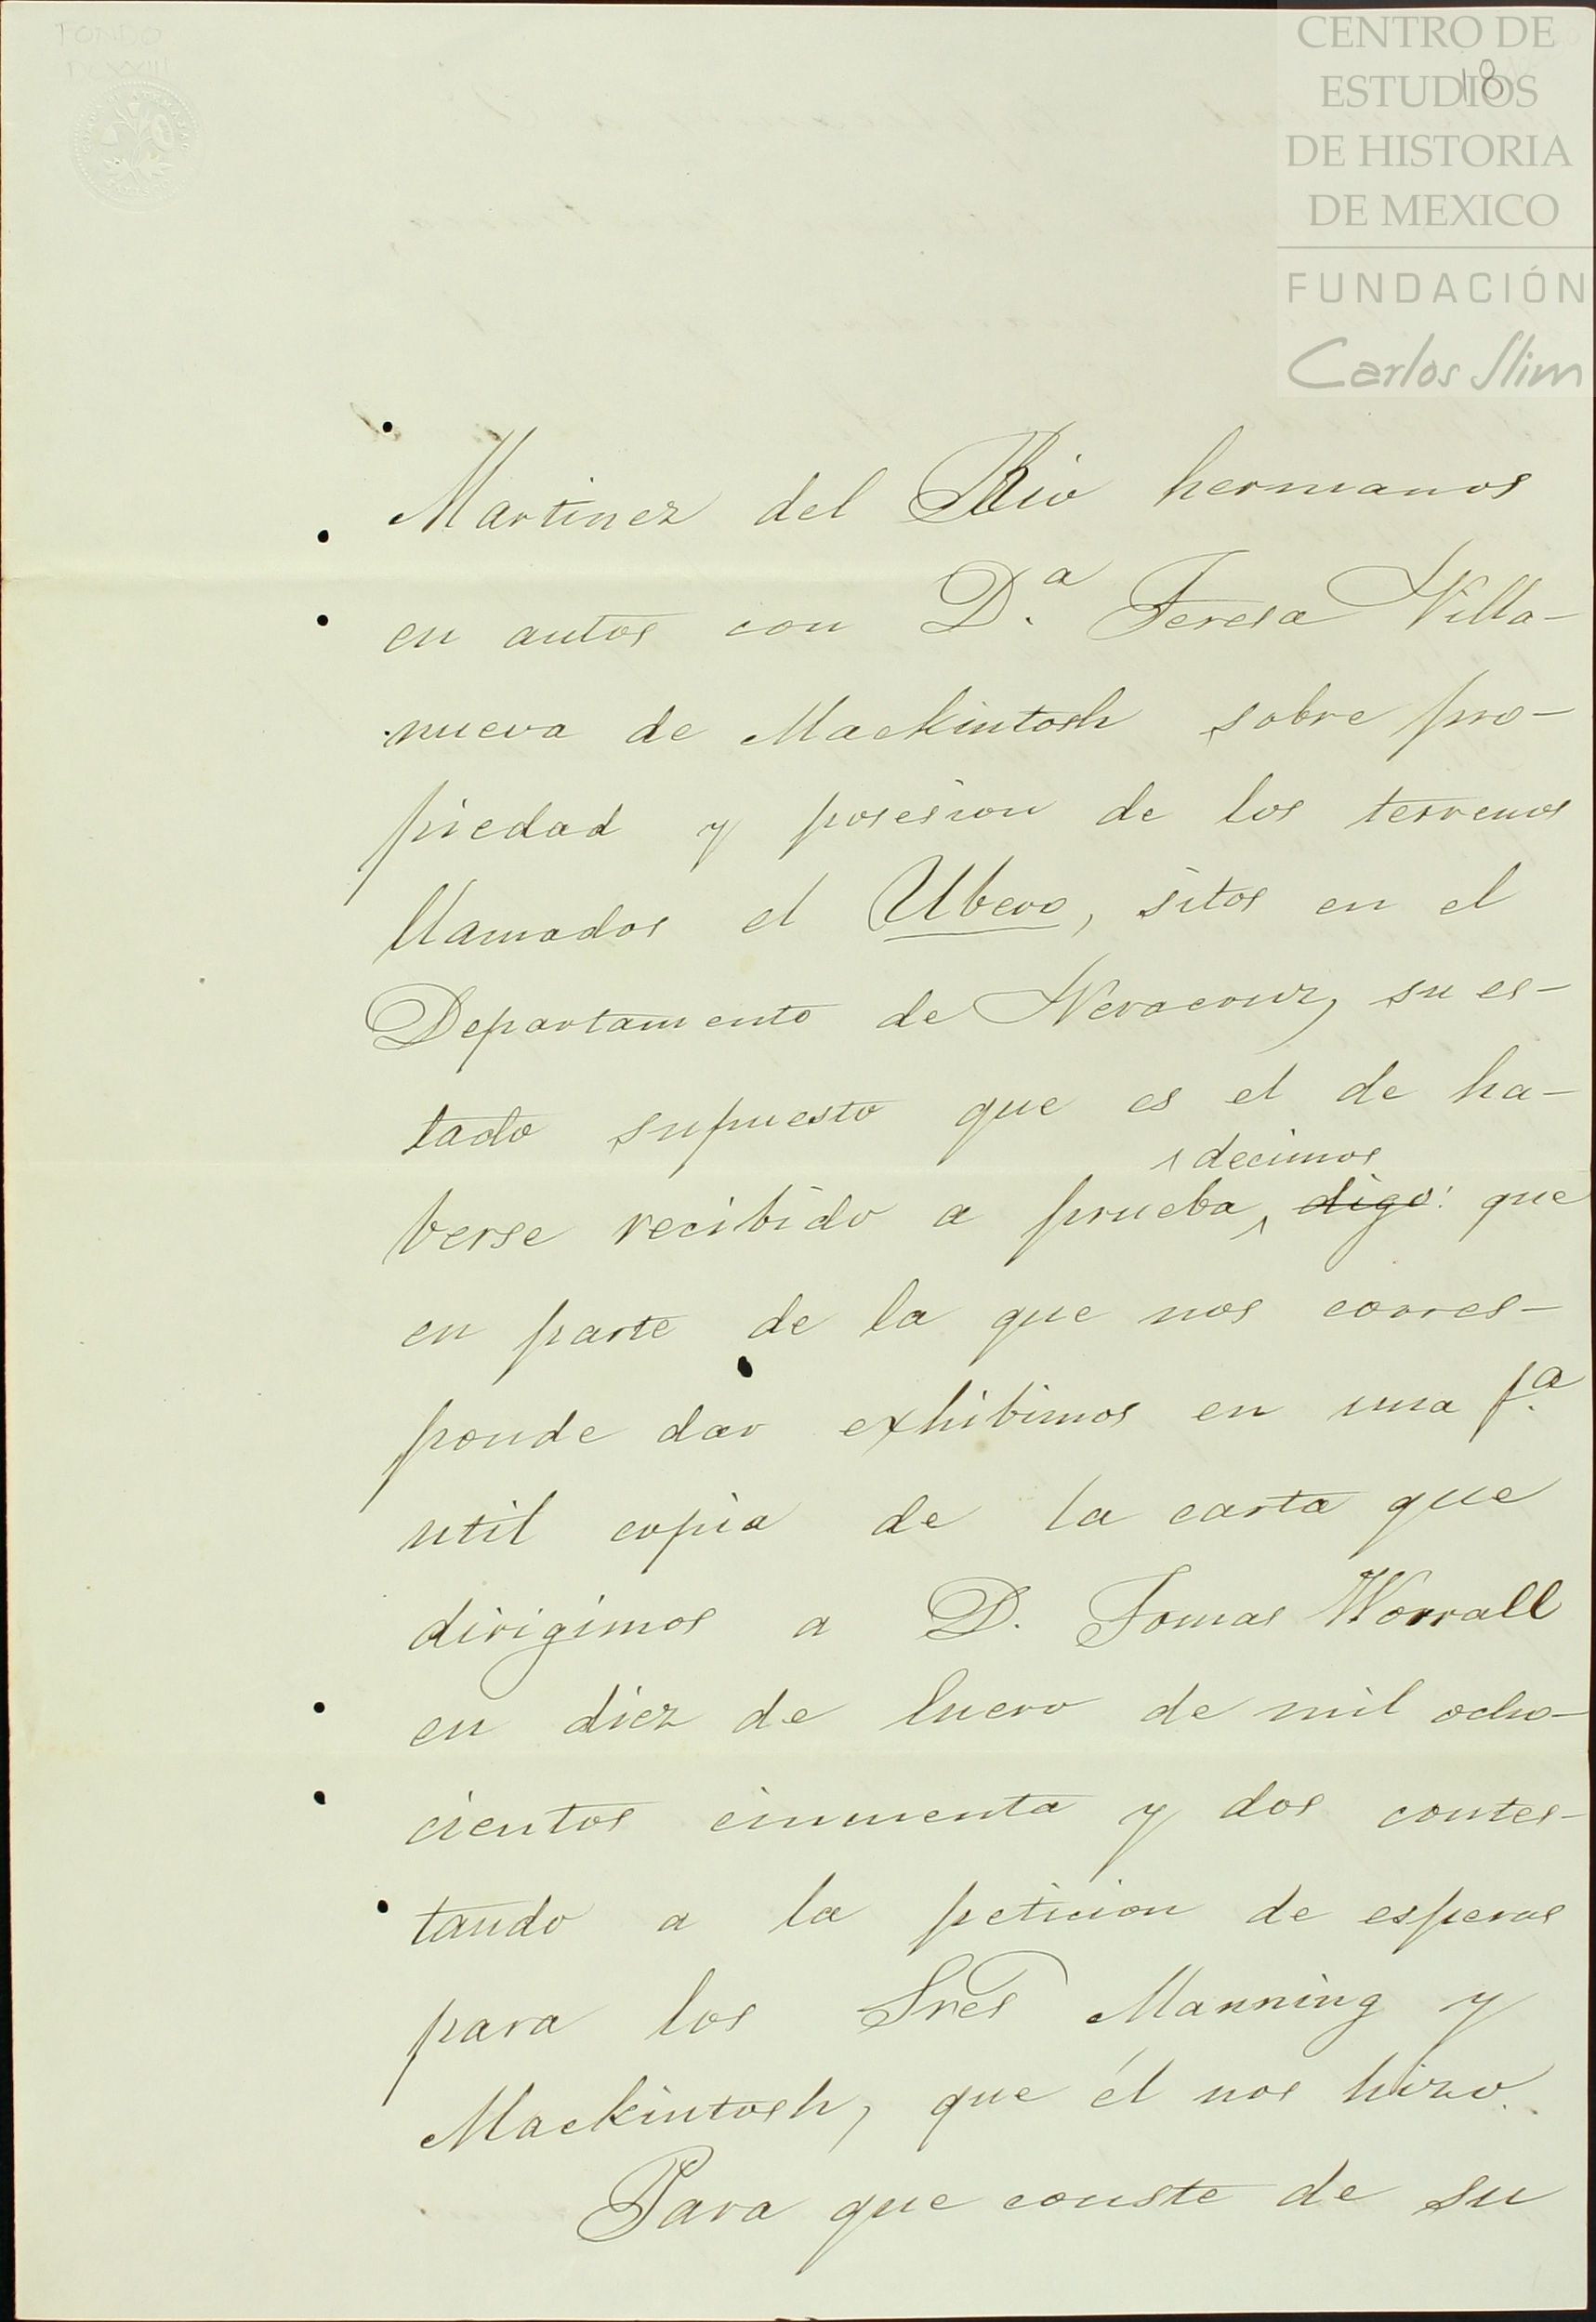 FONDO
DCXVIII
18
CENTRO DE
ESTUDIOS
DE HISTORIA
DE MEXICO
FUNDACIÓN
Carlos Slim
Martinez del Rio hermanos
en autos con D.ª Teresa Villa-
nueva de Mackintosh sobre pro-
piedad y posesion de los terrenos
llamados el Ubero, sitos en el
Departamento de Veracruz, su es-
tado supuesto que es el de ha-
decimos
berse recibido a prueba, digo: que
en parte de la que nos corres-
ponde dar exhibimos en una f.ª
util copia de la carta que
dirigimos a D. Tomas Worrall
en diez de Enero de mil ocho-
cientos cincuenta y dos contes-
tando a la peticion de esperas
para los Sres Manning y
Mackintosh, que él nos hizo.
Para que conste de su